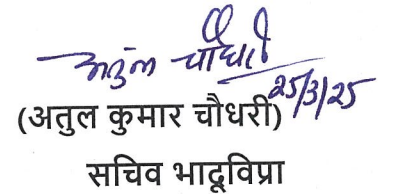 अतुल चौधरी
25/3/25
(अतुल कुमार चौधरी)
सचिव भादूविप्रा